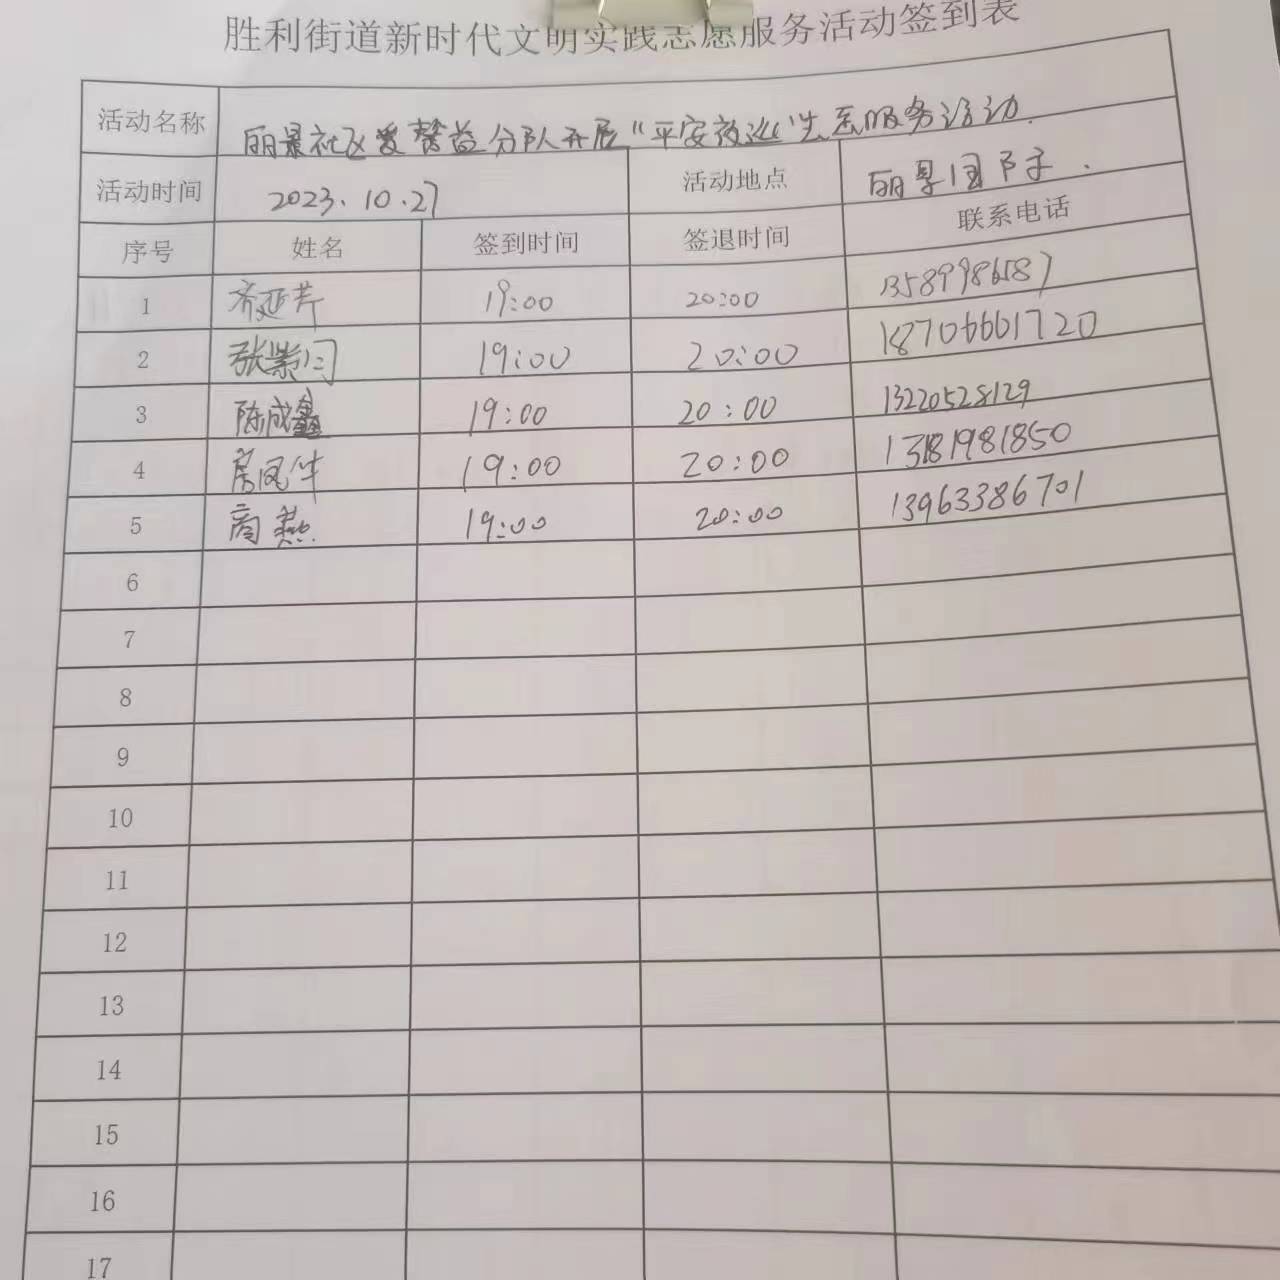 胜利街道新时代文明实践志愿服务活动签到表
活动名称 丽景社区爱馨益分队开展"平安夜巡"志愿服务活动.
活动时间 2023.10.27 活动地点 丽景国际.
序号 姓名 签到时间 签退时间 联系电话
1 齐延芹 19:00 20:00 1358998687
2 张紫闫 19:00 20:00 18706661720
3 陈成鑫 19:00 20:00 13220528129
4 房凤华 19:00 20:00 13181981850
5 商燕 19:00 20:00 13963386701
6
7
8
9
10
11
12
13
14
15
16
17